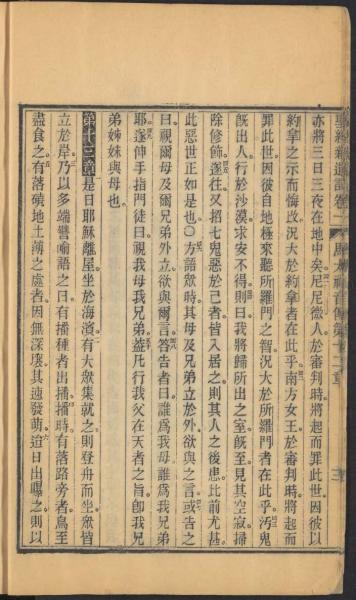 聖經新遺詔卷一 馬太福音傳第十二章 三
亦將三日三夜在地中矣尼尼微人於審判時將起而罪此世因彼以
約拿之示而悔改況大於約拿者在此乎南方女王於審判時將起而
罪此世因彼自地極來聽所羅門之智況大於所羅門者在此乎汚鬼
旣出人行於沙漠求安不得則曰我將歸所出之室旣至見其空寂掃
除修飾遂往又招七鬼惡於己者皆入居之則其人之後患比前尤甚
此惡世正如是也〇方語眾時其母及兄弟立於外欲與之言或告之
曰視爾母及爾兄弟外立欲與爾言答告者曰誰爲我母誰爲我兄弟
耶遂伸手指門徒曰視我母我兄弟蓋凡行我父在天者之旨卽我兄
弟姊妹與母也
第十三章是日耶穌離屋坐於海濱有大眾集就之則登舟而坐眾皆
立於岸乃以多端譬喻語之曰有播種者出播播時有落路旁者鳥至
盡食之有落磽地土薄之處者因無深壤其速發萌迨日出曝之則以